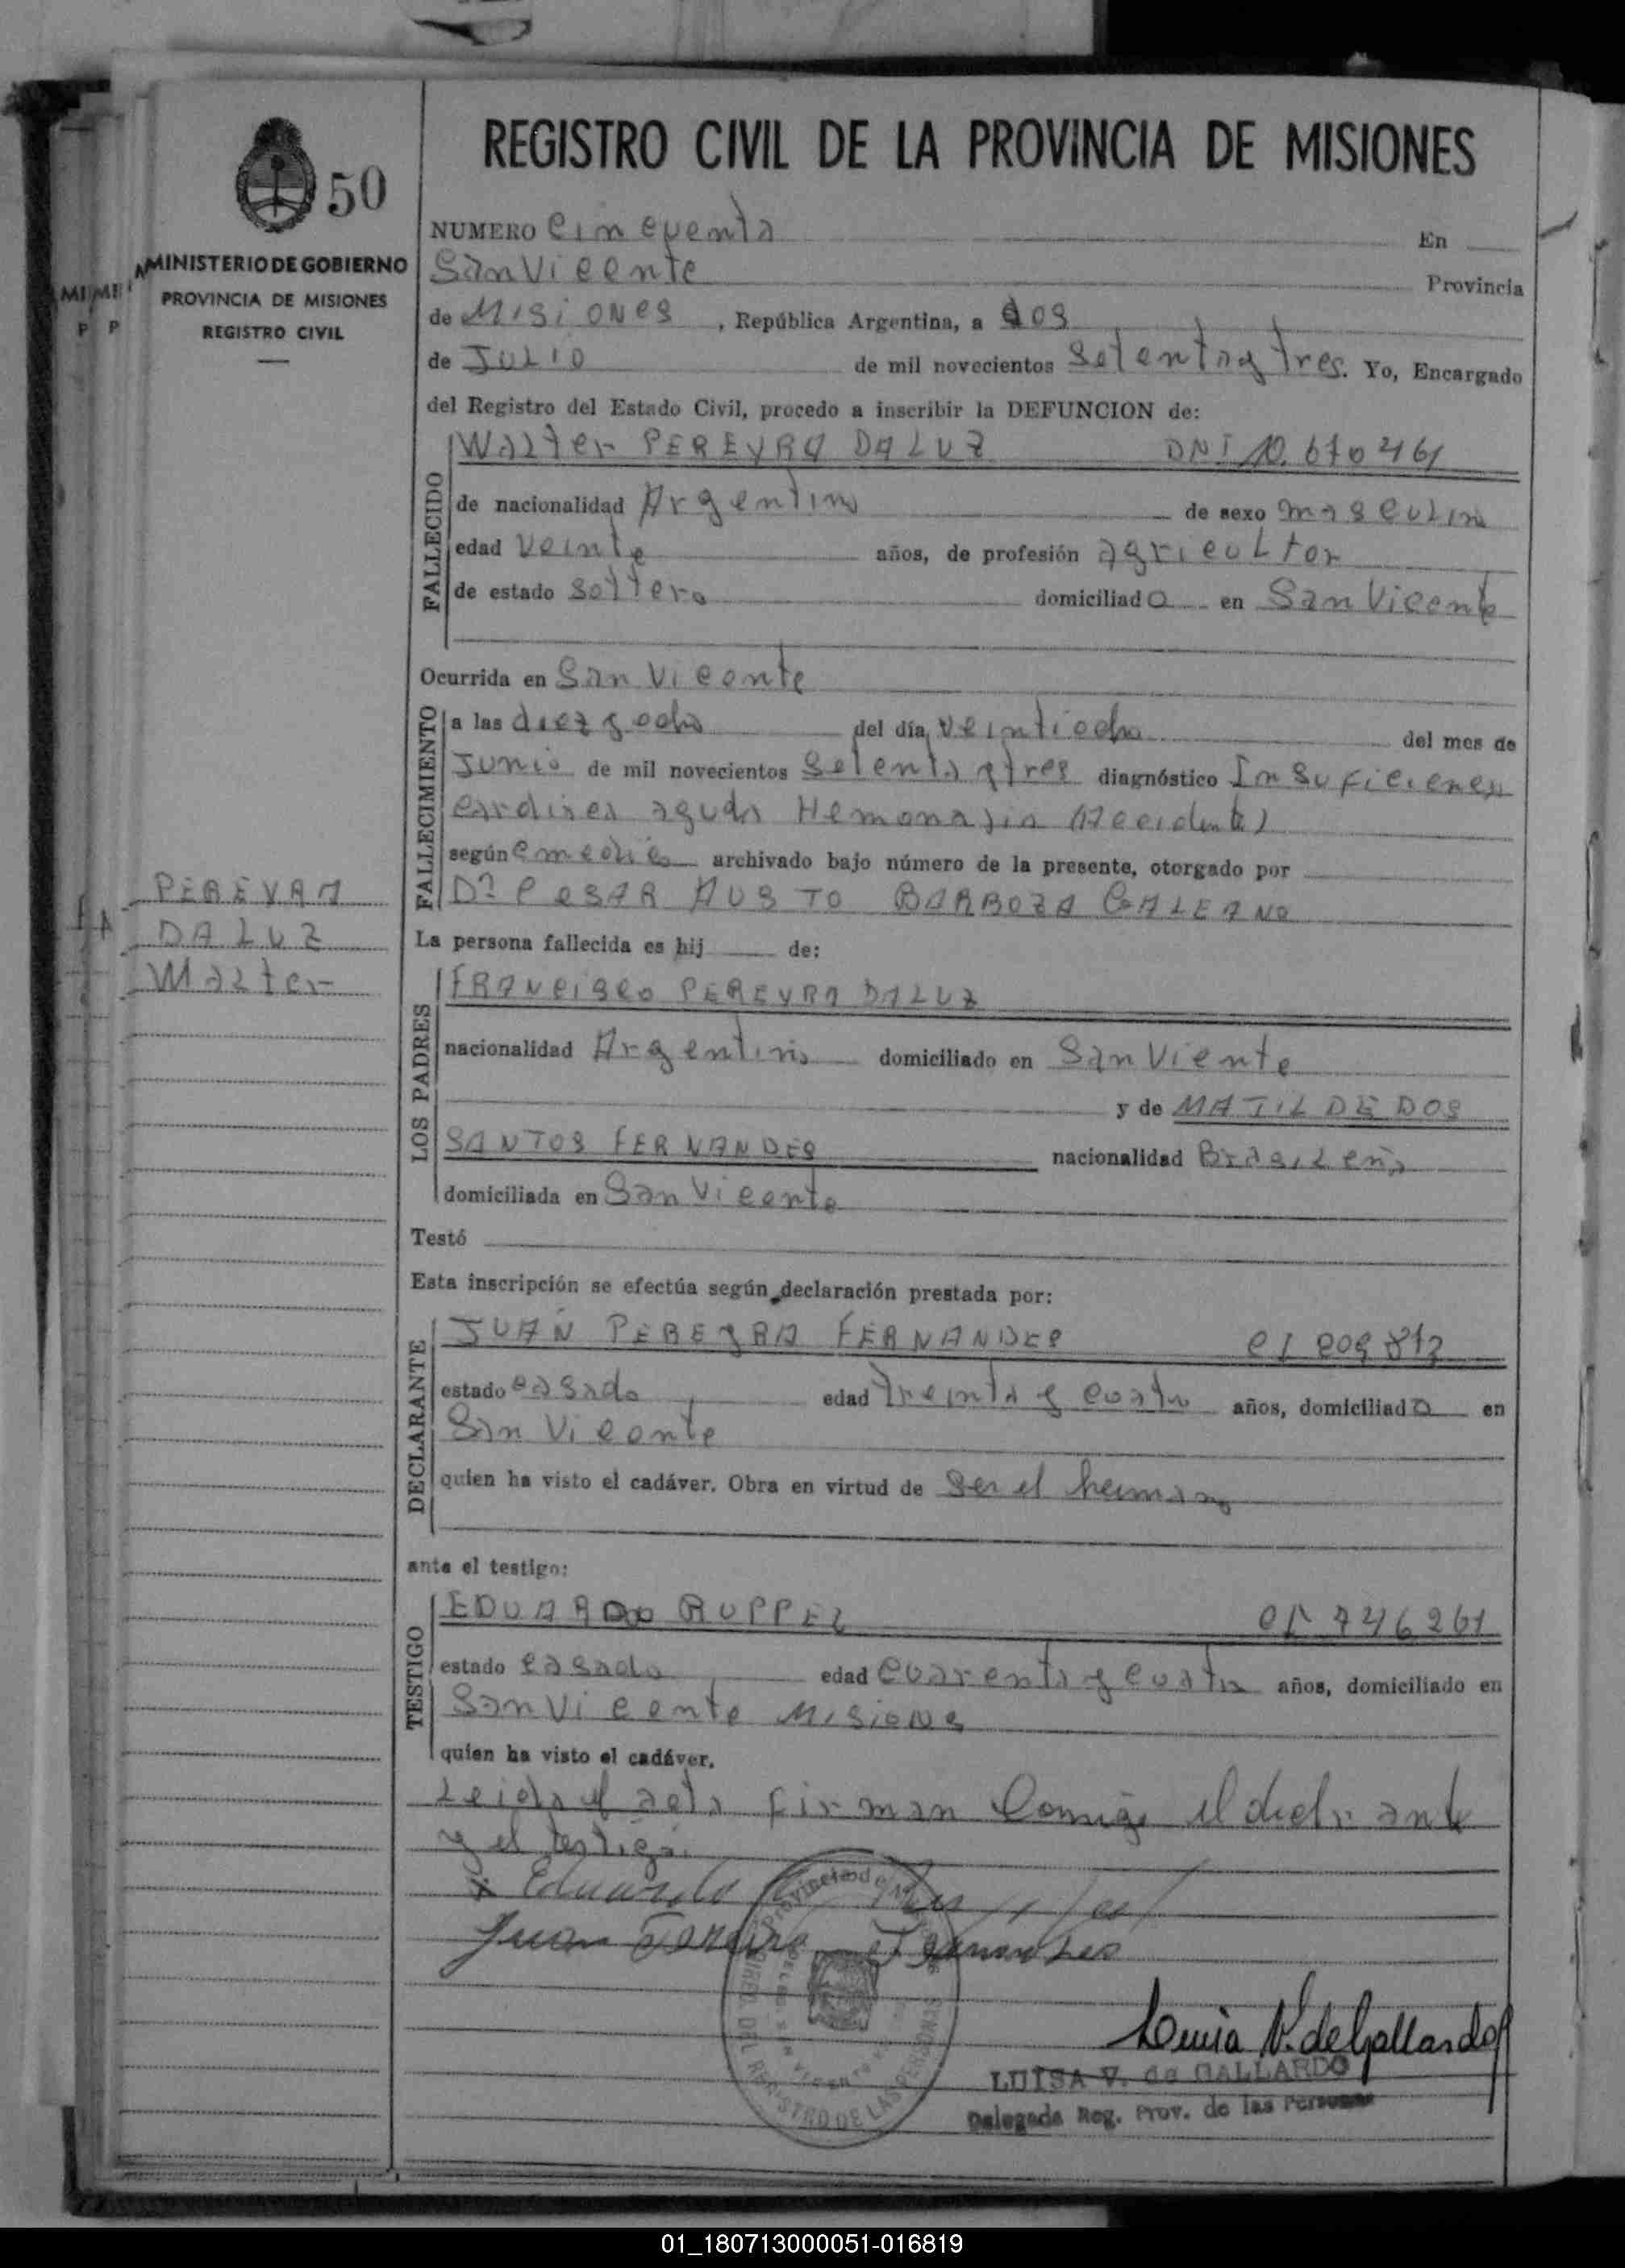 REGISTRO CIVIL DE LA PROVINCIA DE MISIONES
50
MINISTERIO DE GOBIERNO
PROVINCIA DE MISIONES
REGISTRO CIVIL
NUMERO Cincuenta En
San Vicente Provincia
de Misiones, República Argentina, a dos
de Julio de mil novecientos Setenta y tres. Yo, Encargado
del Registro del Estado Civil, procedo a inscribir la DEFUNCION de:
FALLECIDO
Walter PEREYRA DA LUZ DNI 10.670461
de nacionalidad Argentino de sexo masculino
edad veinte años, de profesión agricultor
de estado soltero domiciliado en San Vicente
Ocurrida en San Vicente
FALLECIMIENTO
a las diez y ocho del día veintiocho del mes de
Junio de mil novecientos Setenta y tres diagnóstico Insuficiencia
cardiaca aguda Hemorragia (Accidente)
según archivado bajo número de la presente, otorgado por
Dr CESAR AUSTO BARBOZA GALEANO
PEREYRA
DA LUZ
Walter
La persona fallecida es hij de:
LOS PADRES
FRANCISCO PEREYRA DA LUZ
nacionalidad Argentino domiciliado en San Viente
y de MATILDE DOS
SANTOS FERNANDES nacionalidad Brasileña
domiciliada en San Vicente
Testó
Esta inscripción se efectúa según declaración prestada por:
DECLARANTE
JUAN PEREYRA FERNANDES CI
estado casado edad treinta y cuatro años, domiciliado en
San Vicente
quien ha visto el cadáver. Obra en virtud de ser el hermano
ante el testigo:
TESTIGO
EDUARDO RUPPEL CI 746261
estado casado edad cuarenta y cuatro años, domiciliado en
San Vicente Misiones
quien ha visto el cadáver.
Leida el acta firman Conmigo el declarante
y el testigo.
Eduardo
Juan Fernandes
Luisa V. de Gallardo
LUISA V. de GALLARDO
Delegada Reg. Prov. de las Personas
01_180713000051-016819